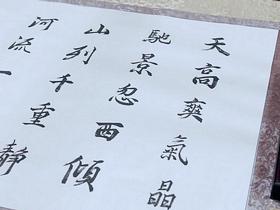 天高爽氣晶
馳景忽西傾
山列千重靜
河流一